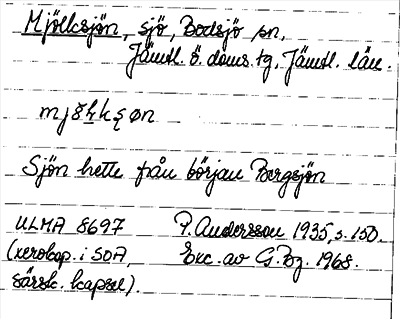 Mjölksjön, sjö, Bodsjö sn,
Jämtl. ö. doms. tg, Jämtl. län.
Sjön hette från början Bergsjön
ULMA 8697 P. Andersson 1935, s. 150.
(xerokop. i SOA, Exc. av G. Bg. 1968.
särsk. kapsel).